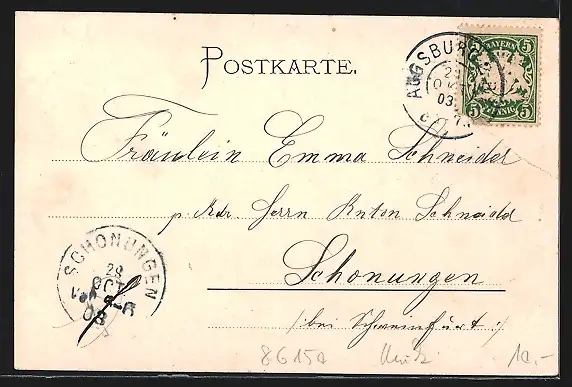 POSTKARTE.
AUGSBURG
03
BAYERN
5 5
5 PFENNIG 5
Fräulein Emma Schneider
p. Adr. Herrn Anton Schneider
Schonungen
/: bei Schweinfurt :/
SCHONUNGEN
29
OCT
03
8615a
10.-